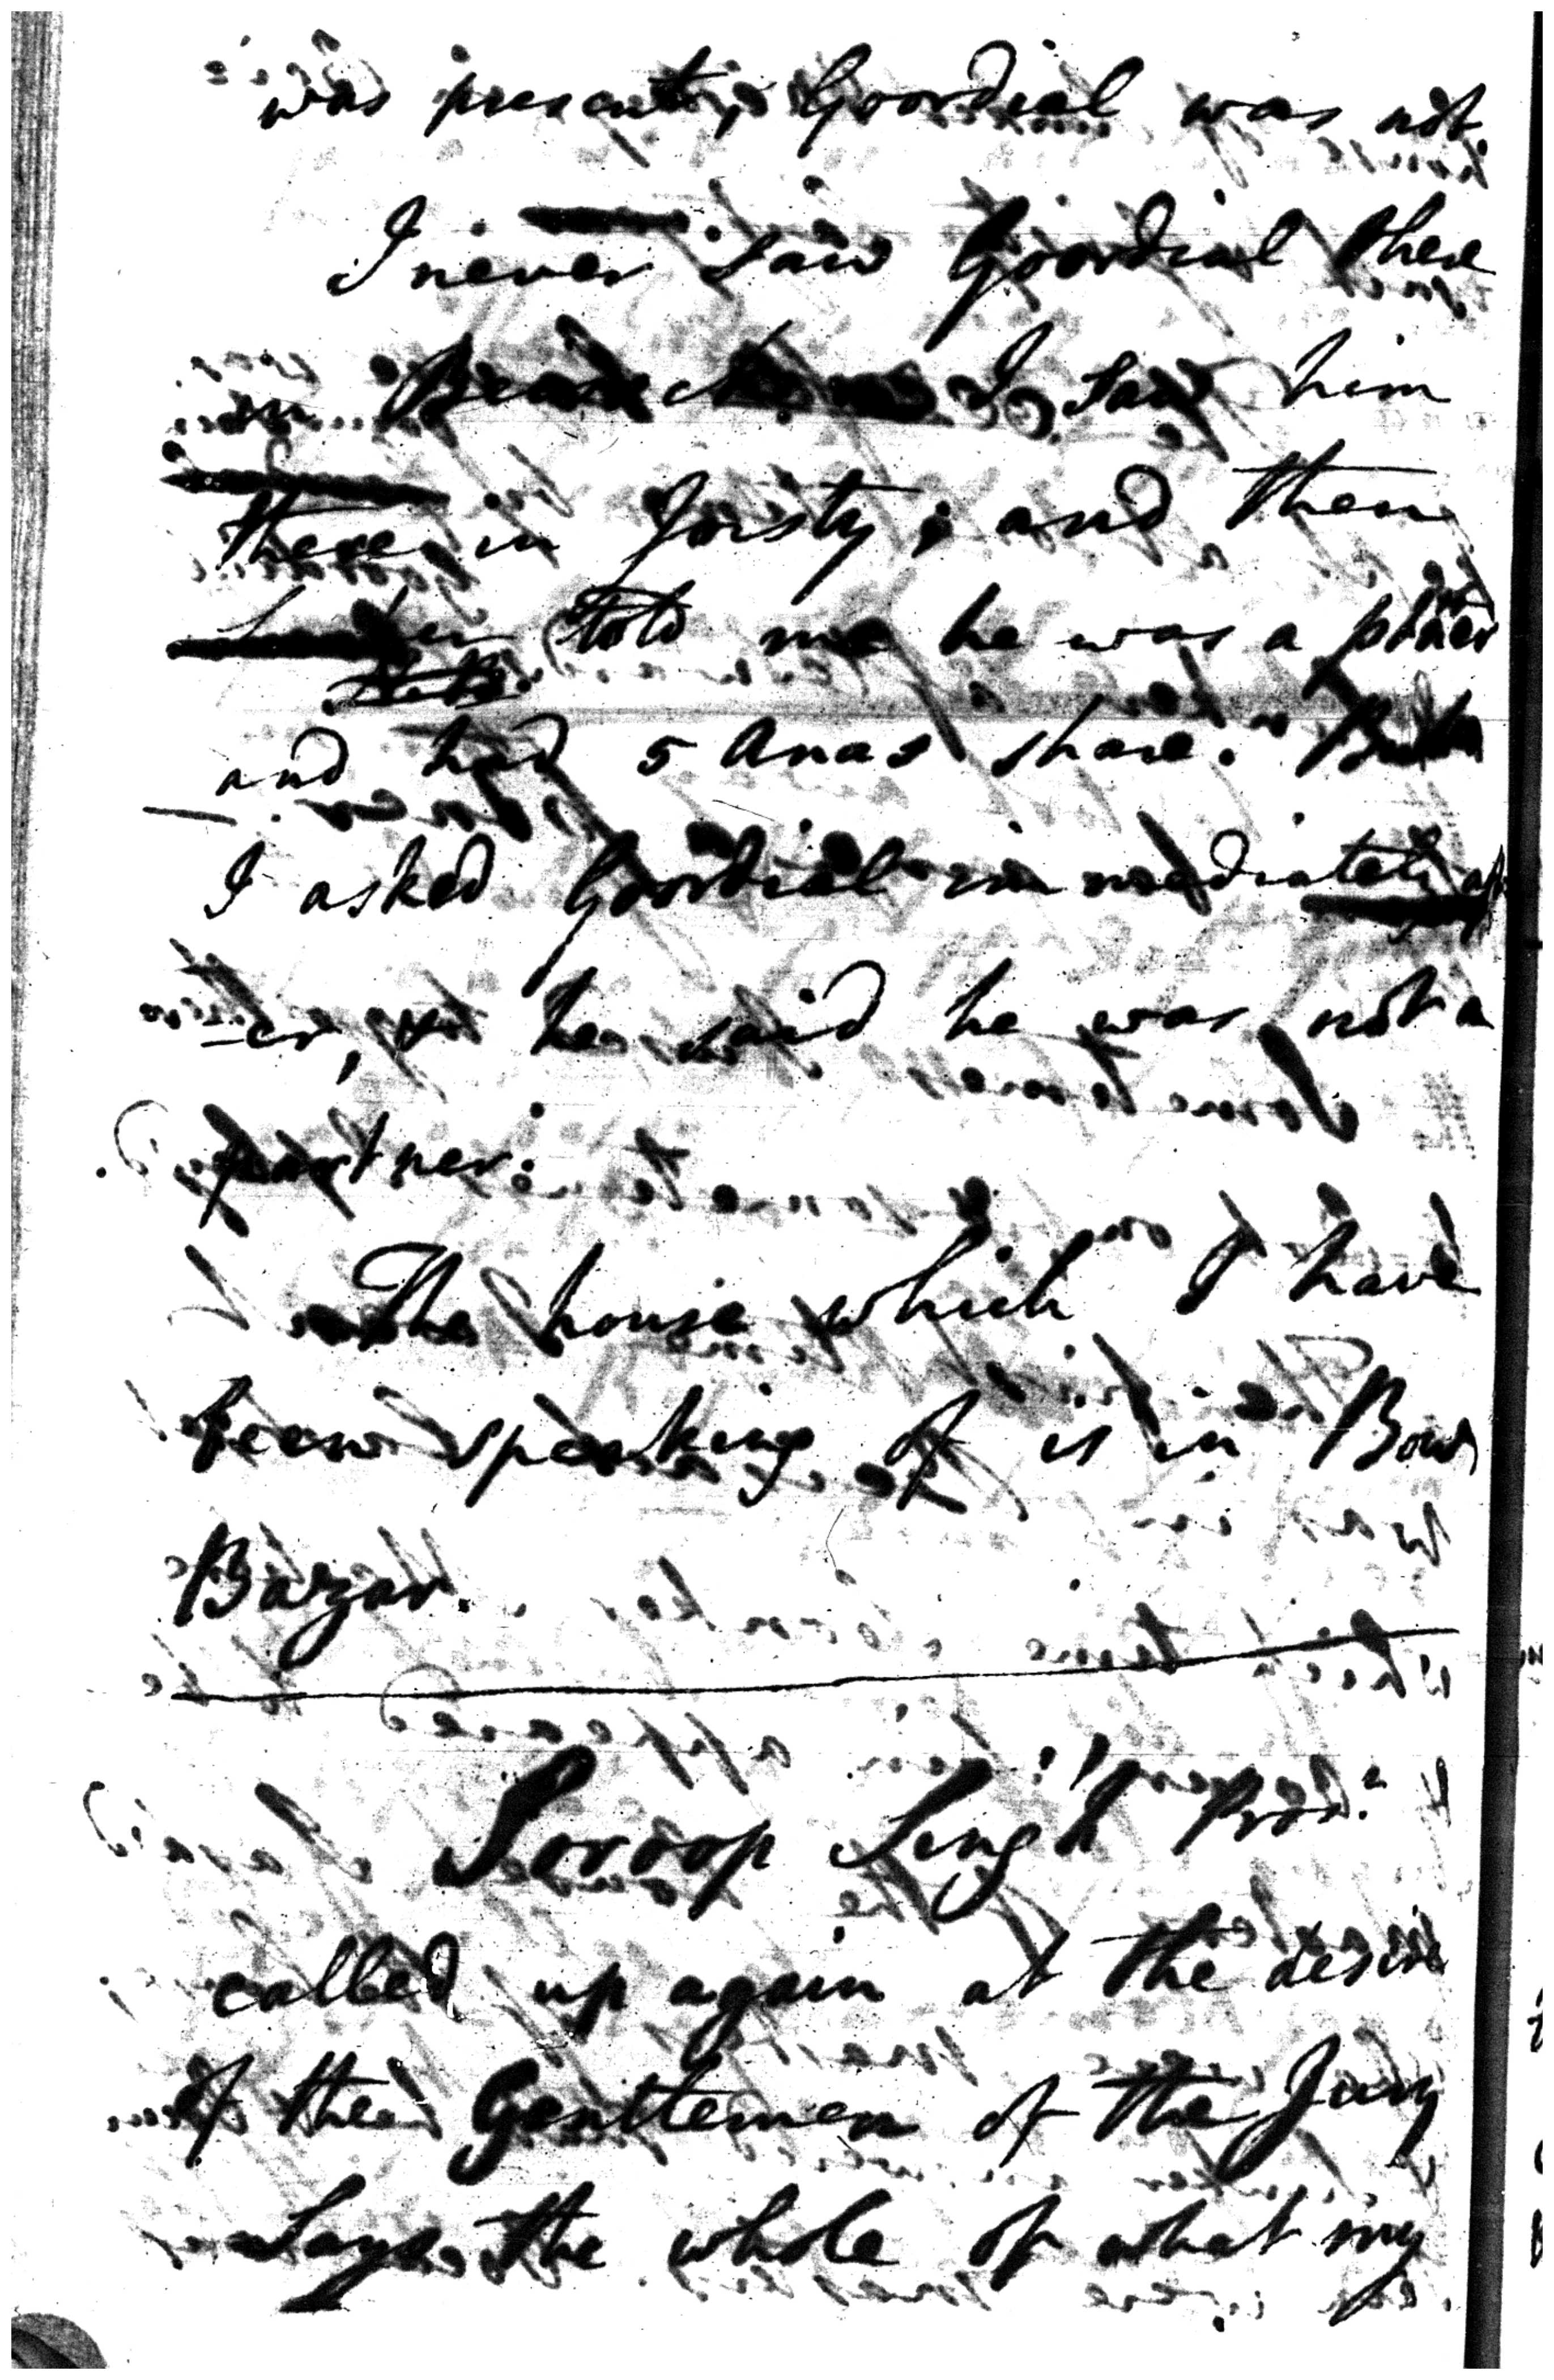 was present, Goordial was not
I never saw Goordial there
in I saw him
there in Josty; and then
told me he was a
and had 5 Anas share. But
I asked Goordial immediately aft
=er, & he said he was not a
partner.
The house which I have
been speaking of is in Bow
Bazar.
Soroop Singh Pros.
called up again at the desire
of the Gentlemen of the Jury
Says the whole of what my